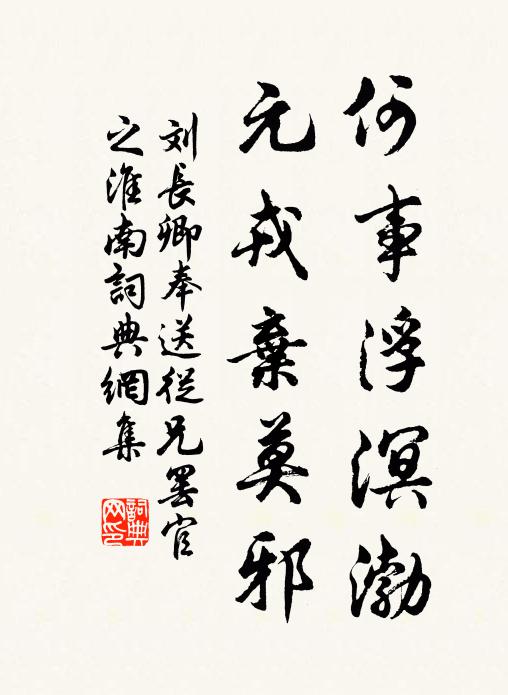 何事浮溟渤
元戎棄莫邪
刘長卿奉送從兄罢官
之淮南詞典網集
詞典网印